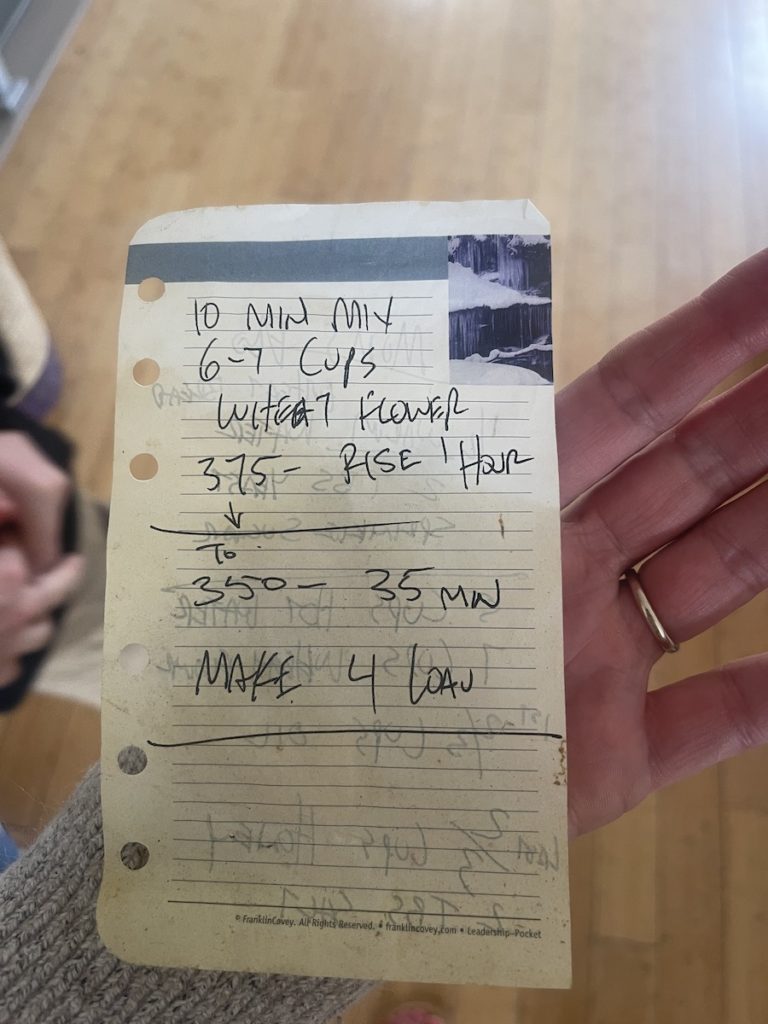 10 MIN MIX
6-7 CUPS
WHEAT FLOWER
375- RISE 1 HOUR
↓
TO
350- 35 MIN
MAKE 4 LOAV
© FranklinCovey. All Rights Reserved. • franklincovey.com • Leadership-Pocket